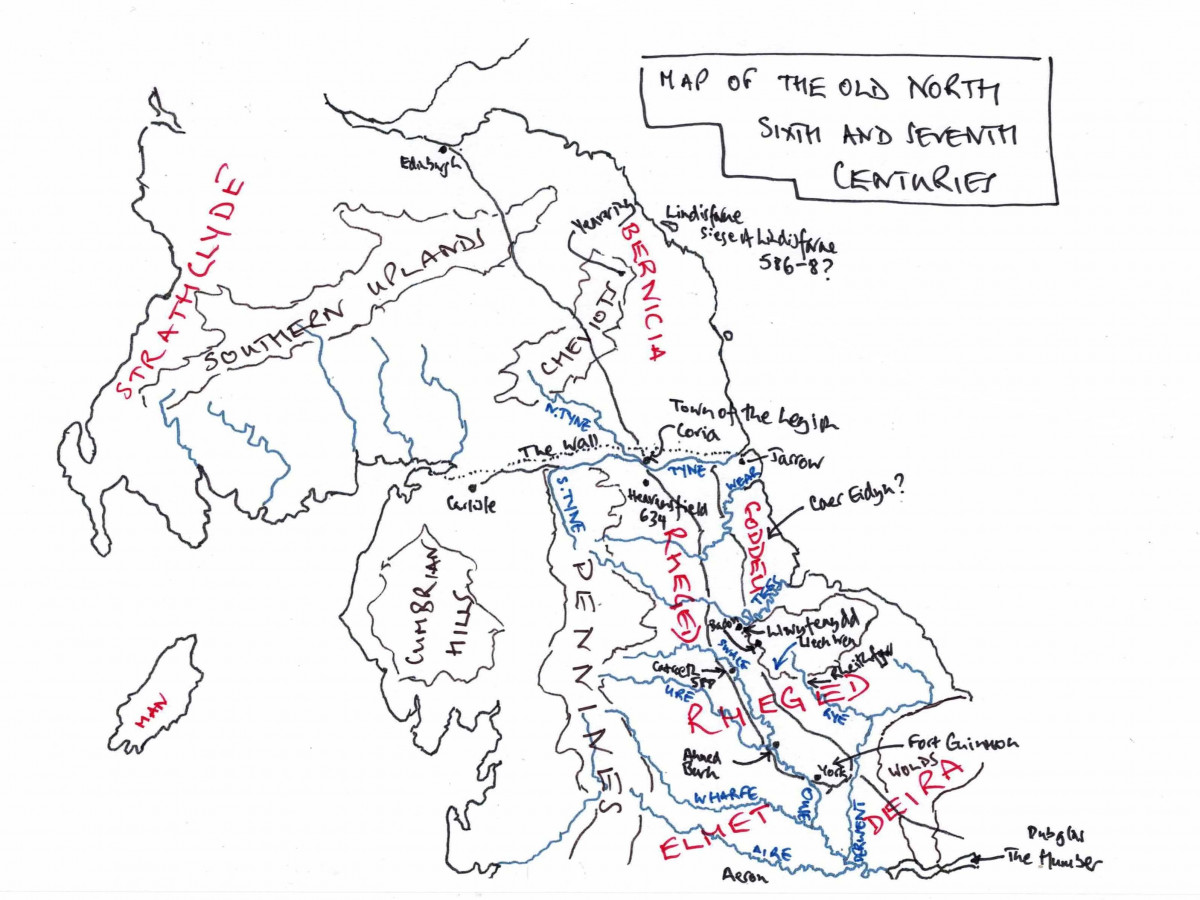 MAP OF THE OLD NORTH
SIXTH AND SEVENTH
CENTURIES
Edinburgh
STRATHCLYDE
SOUTHERN UPLANDS
Yeavering
BERNICIA
Lindisfarne
Siege of Lindisfarne
586-8?
CHEVIOTS
N. TYNE
Town of the Legion
Coria
The Wall
TYNE
Jarrow
WEAR
Carlisle
S. TYNE
Heavensfield
634
Caer Eidyn?
GODDEU
RHEGED
CUMBRIAN
HILLS
PENNINES
TEES
Badon
Llwyfenydd
Llech Wen
SWALE
Catraeth
580
URE
RHEGED
RYE
MAN
Fort Guinnion
WOLDS
York
WHARFE
OUSE
DEIRA
DERWENT
ELMET
AIRE
Aeron
Dubglas
The Humber